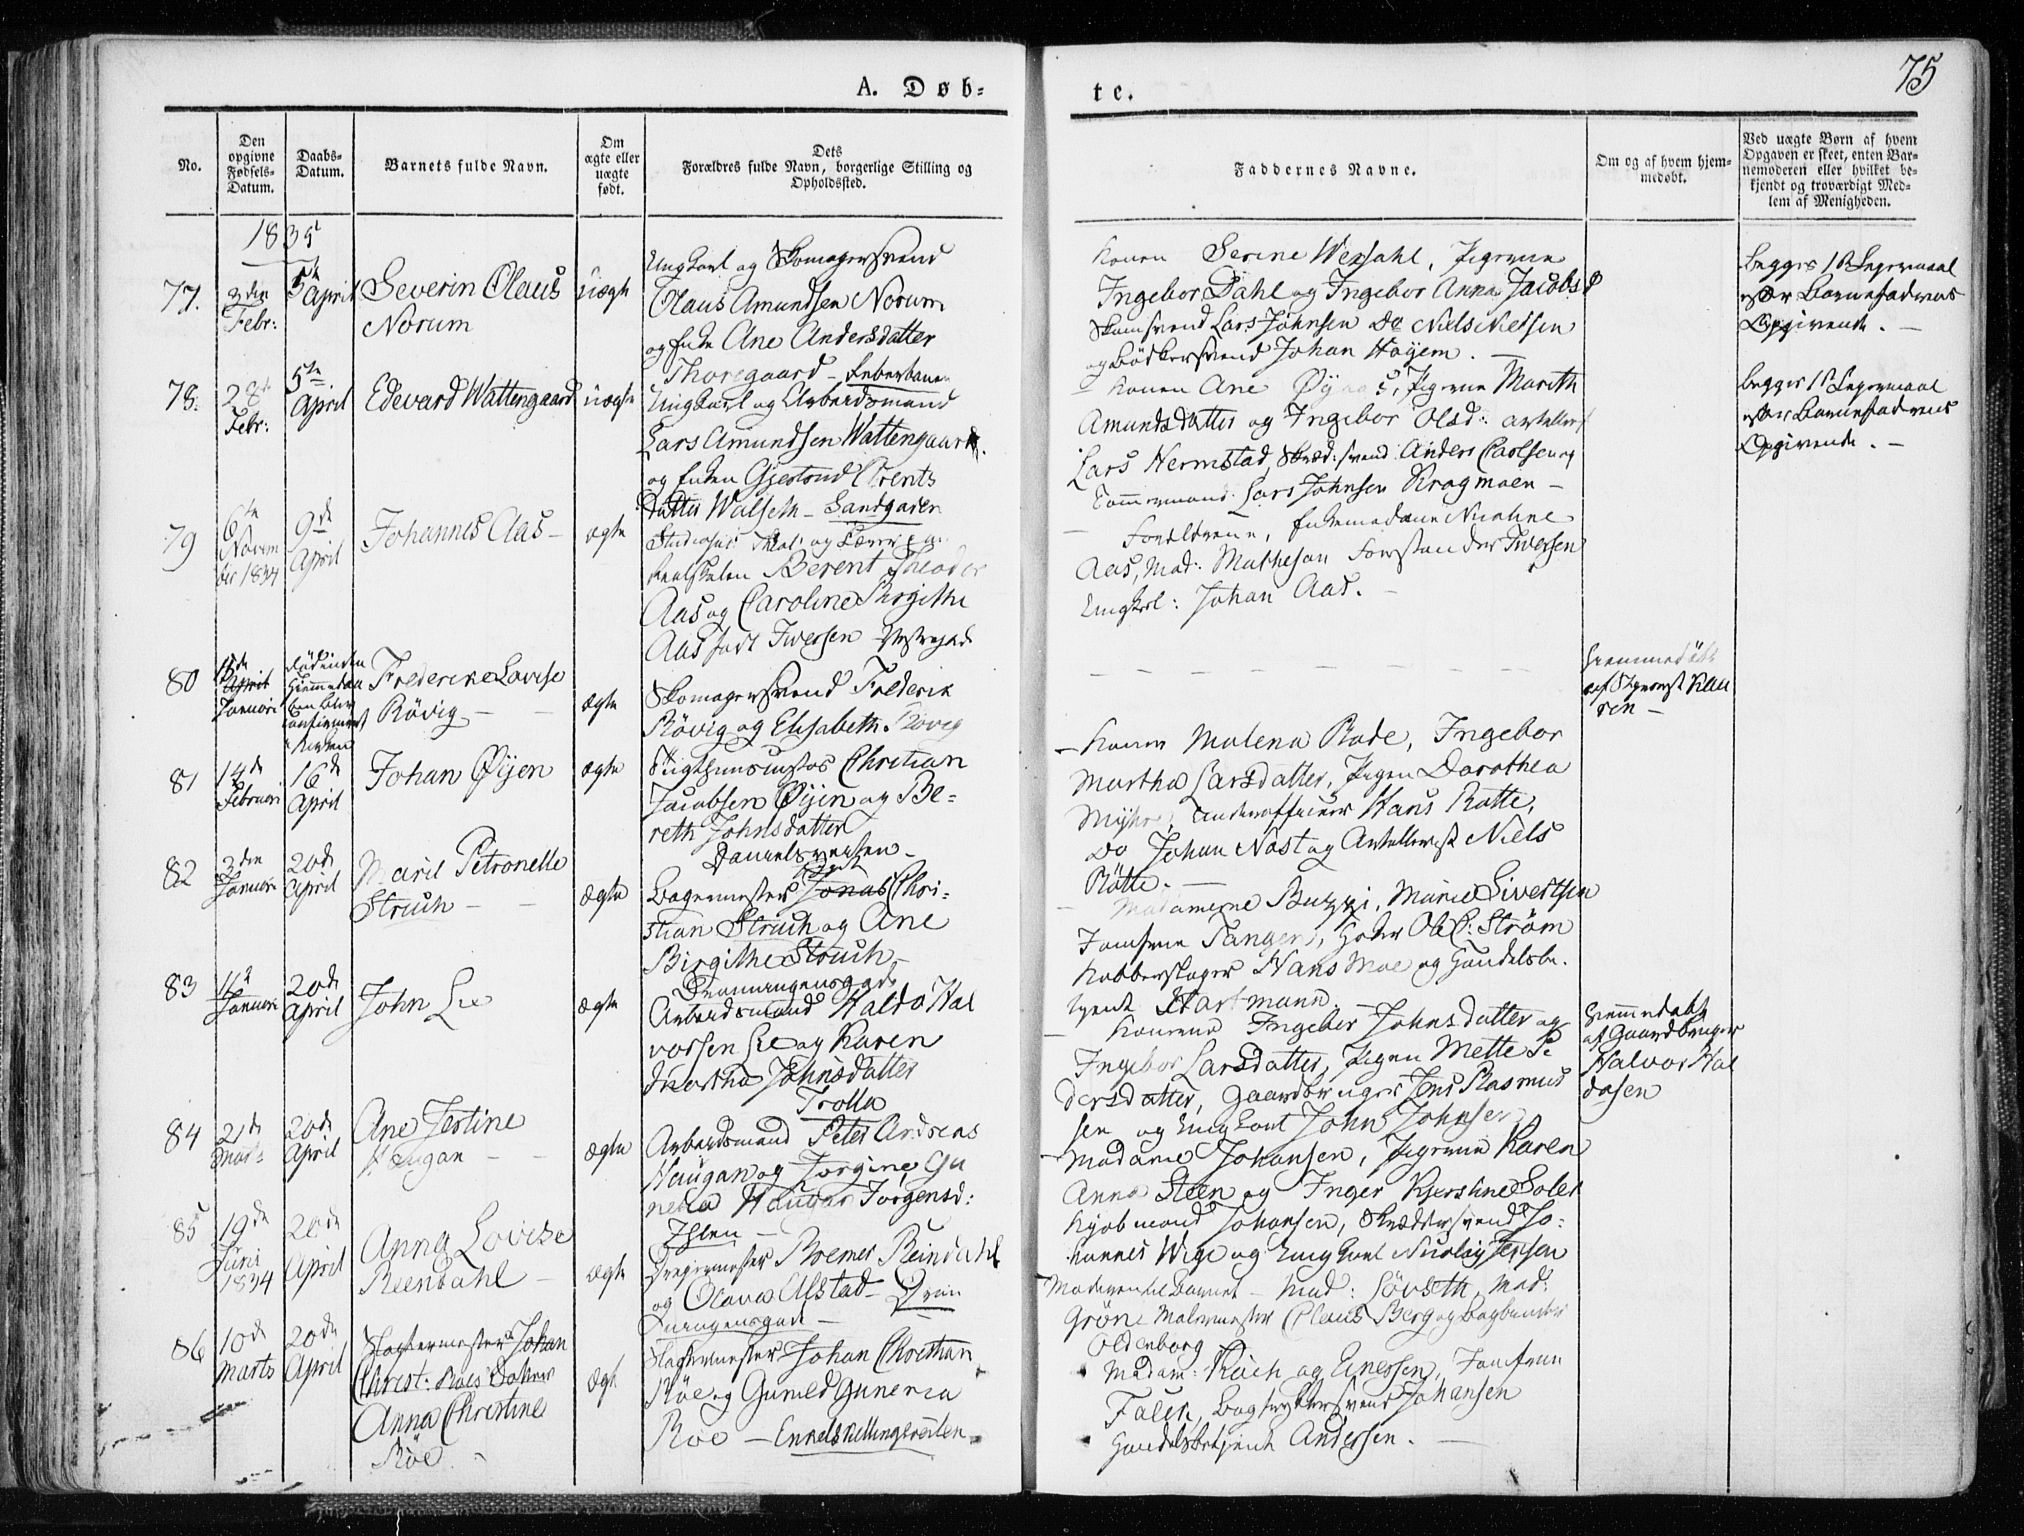 A. Døb-
te.
75
No.
Den
opgivne
Fødsels-
Datum.
Daabs-
Datum.
Barnets fulde Navn.
Om
ægte eller
uægte
født.
Dets
Forældres fulde Navn, borgerlige Stilling og
Opholdssted.
Faddernes Navne.
Om og af hvem hjem-
medøbt.
Ved uægte Børn af hvem
Opgaven er skeet, enten Bar-
nemoderen eller hvilket be-
kjendt og troværdigt Med-
lem af Menigheden.
1835
77.
3den
Febr:
5te
April
Severin Olaus
Norum
uægte
Ungkarl og Skomagersvend
Olaus Amundsen Norum
og Enke Ane Andersdatter
Thoregaard -
Konen Serene Wexsahl, Pigerne
Ingebor Dahl og Ingebor Anna Jacobsd
Lars Johnsen Do Niels Nielsen
og Bødkersvend Johan Høyem. -
begges 1ste Leiermaal
efter Barnefaderens
Opgivende. -
78.
28de
Febr:
5te
April
Edevard Wattengaard
uægte
Ungkarl og Arbeidsmand
Lars Amundsen Wattengaard.
og Enken Gjertrud Arents
Datter Walseth - Sandgaden
Konen Ane Pigerne Marith
Amundsdatter og Ingebor Olsd:
Lars Hermstad, Skræd: svend Anders Carlsen og
Tømmermand Lars Johnsen Kragmoen -
begges 1ste Leiermaal
efter Barnefaderens
Opgivende. -
79
6te
Novem
ber 1834
9de
April
Johannes Aas -
ægte
og Lærer
Realskolen Berent Theodor
Aas og Caroline Birgithe
Aas født Iwersen
Forældrene,
Aas, Mad: Matheson Forstander Iwersen
Ungkrl: Johan Aas. -
80
Januari
Frederikke Lovise
Rövig -
ægte
Skomagersvend Frederik
Rövig og Elisabeth Rövig
Hiemmedøbt
81
14de
Februari
16de
April
Johan Øyen
ægte
Christian
Jacobsen Øyen og Be-
reth Johnsdatter
Danielsveiten -
Konen Malena Rode, Ingebor
Martha Larsdatter, Pigen Dorothea
Underofficeer Hans Rotte,
Do Johan Nast og Artellerist Niels
Rötte. -
82
3den
Januari
20de
April
Maril Petronelle
Struch -
ægte
Bagermester Jonas Chri-
stian Struch og Ane
Birgithe Struch -
Madamerne Buzzi, Marie Sivertsen
Jomfrue Tanger, Ole C: Strøm
Kobberslager Hans Moe og Handelsbe-
tjent Hartmann.
83
16de
Januari
20de
April
John Lie
ægte
Arbeidsmand Haldo Hal
vorsen Lie og Karen
Martha Johnsdatter
Trolla
Konerne Ingebor Johnsdatter og
Ingebor Larsdatter, Pigen Mette Pe
dersdatter, Gaardbruger Jens Rasmus
sen og Ungkarl John Johnsen
Hiemmedøbt
af Gaardbruger
Halvor Hal
dosen
84
21de
Marts
20de
April
Ane Jestine
Haugan -
ægte
Arbeidsmand Peter Andreas
Haugan og Jorgine Gu
neria Haugan Jörgensd:
Ihlen -
Madame Johansen, Pigerne Karen
Anna Steen og Inger Kjerstine Soler
Kjøbmand Johansen, Skræddersvend Jo-
hannes Wige og Ungkarl Nicolay Jensen
85
19de
Juni
1834
20de
April
Anna Lovise
Reendahl -
ægte
Dreiermester Bremer Reindahl
og Olava Alstad - Dron
ningensgade -
Moderen til Barnet - Mad: Lövseth, Mad:
Gröne Malermester Claus Berg og Bogbinder
Oldenborg
86
10de
Marts
20de
April
Slagtermester Johan
Christ: Röes Datter
Anna Christine
Röe -
ægte
Slagtermester Johan Christian
Röe og Gunild Guneria
Röe - Enkelskillingsveiten -
Madam: Koch og Enersen, Jomfrue
Falck, Bogtrykkersvend Johansen
Handelsbetjent Andersen. -